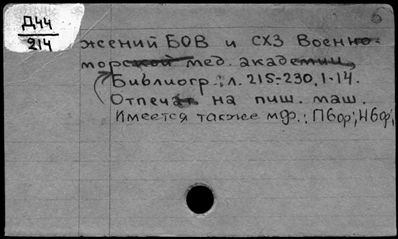 Д44
214
6
жений БОВ и СХЗ Военно-
морской мед. академии
Библиогр.: л. 215-230, 1-14.
Отпечат на пиш. маш.
Имеется также мф.: